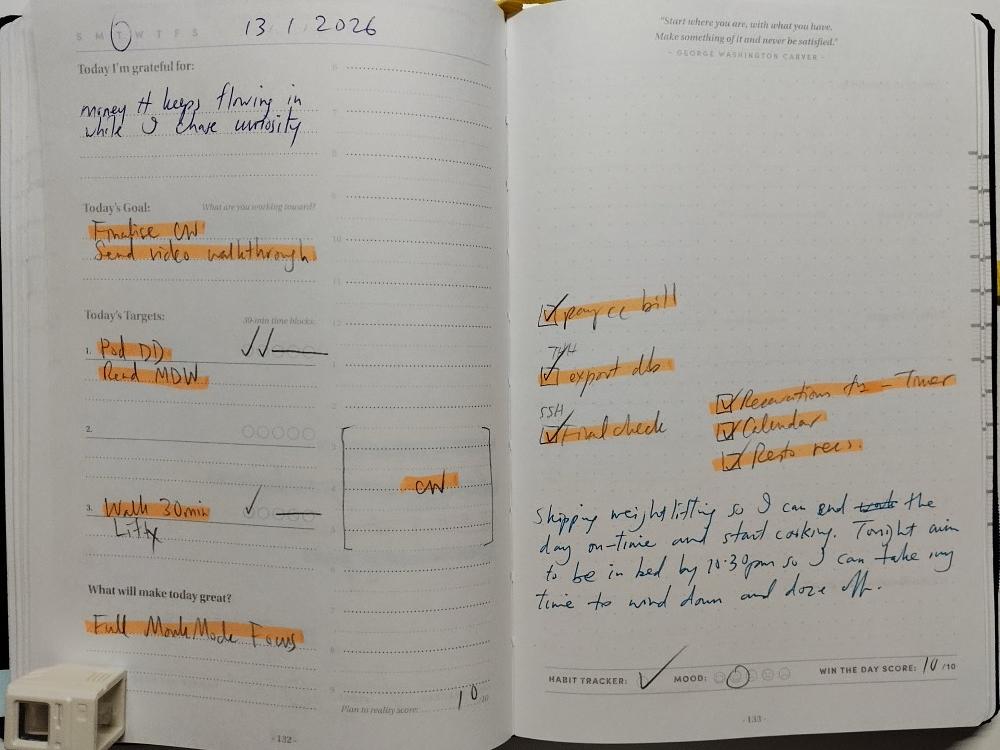 S M T W T F S 13 1 2026
Today I'm grateful for:
money tt keeps flowing in
while I chase curiosity
Today's Goal: What are you working toward?
Finalise CW
Send video walkthrough
Today's Targets: 30-min time blocks.
1. Pod DD
Read MDW
2.
3. Walk 30min
Lift
What will make today great?
Full Monk Mode Focus
6
7
8
9
10
11
12
1
2
3
4
CW
5
6
7
8
9
Plan to reality score: 10/10
- 132 -
"Start where you are, with what you have.
Make something of it and never be satisfied."
- GEORGE WASHINGTON CARVER -
pay cc bill
export dbs
SSH
Final check
Reservations - Timer
Calendar
Resto recs.
Skipping weightlifting so I can end work the
day on-time and start cooking. Tonight aim
to be in bed by 10:30pm so I can take my
time to wind down and doze off.
HABIT TRACKER: MOOD: WIN THE DAY SCORE: 10/10
- 133 -